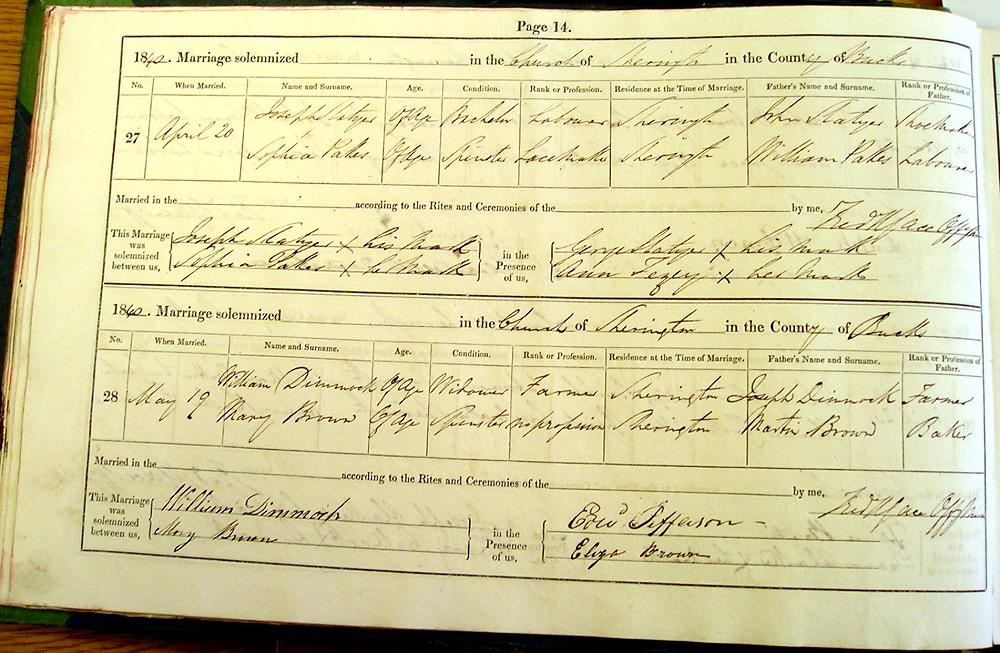 Page 14.
1840. Marriage solemnized in the Church of Sherington in the County of Bucks
No. When Married. Name and Surname. Age. Condition. Rank or Profession. Residence at the Time of Marriage. Father's Name and Surname. Rank or Profession of Father.
Joseph Of Age Bachelor Labourer John Shoemaker
27 April 20
Sophia Of Age Spinster Lacemaker William Labourer
Married in the according to the Rites and Ceremonies of the by me,
This Marriage was solemnized between us,
Joseph X his Mark
Sophia X Mark
in the Presence of us,
George X his Mark
Ann X her Mark
1840. Marriage solemnized in the Church of Sherington in the County of Bucks
No. When Married. Name and Surname. Age. Condition. Rank or Profession. Residence at the Time of Marriage. Father's Name and Surname. Rank or Profession of Father.
William Dimmock Of Age Widower Farmer Sherington Joseph Dimmock Farmer
28 May 19
Mary Brown Of Age Spinster No profession Sherington Martin Brown Baker
Married in the according to the Rites and Ceremonies of the by me,
This Marriage was solemnized between us,
William Dimmock
Mary Brown
in the Presence of us,
Edwd Jefferson
Eliza Brown